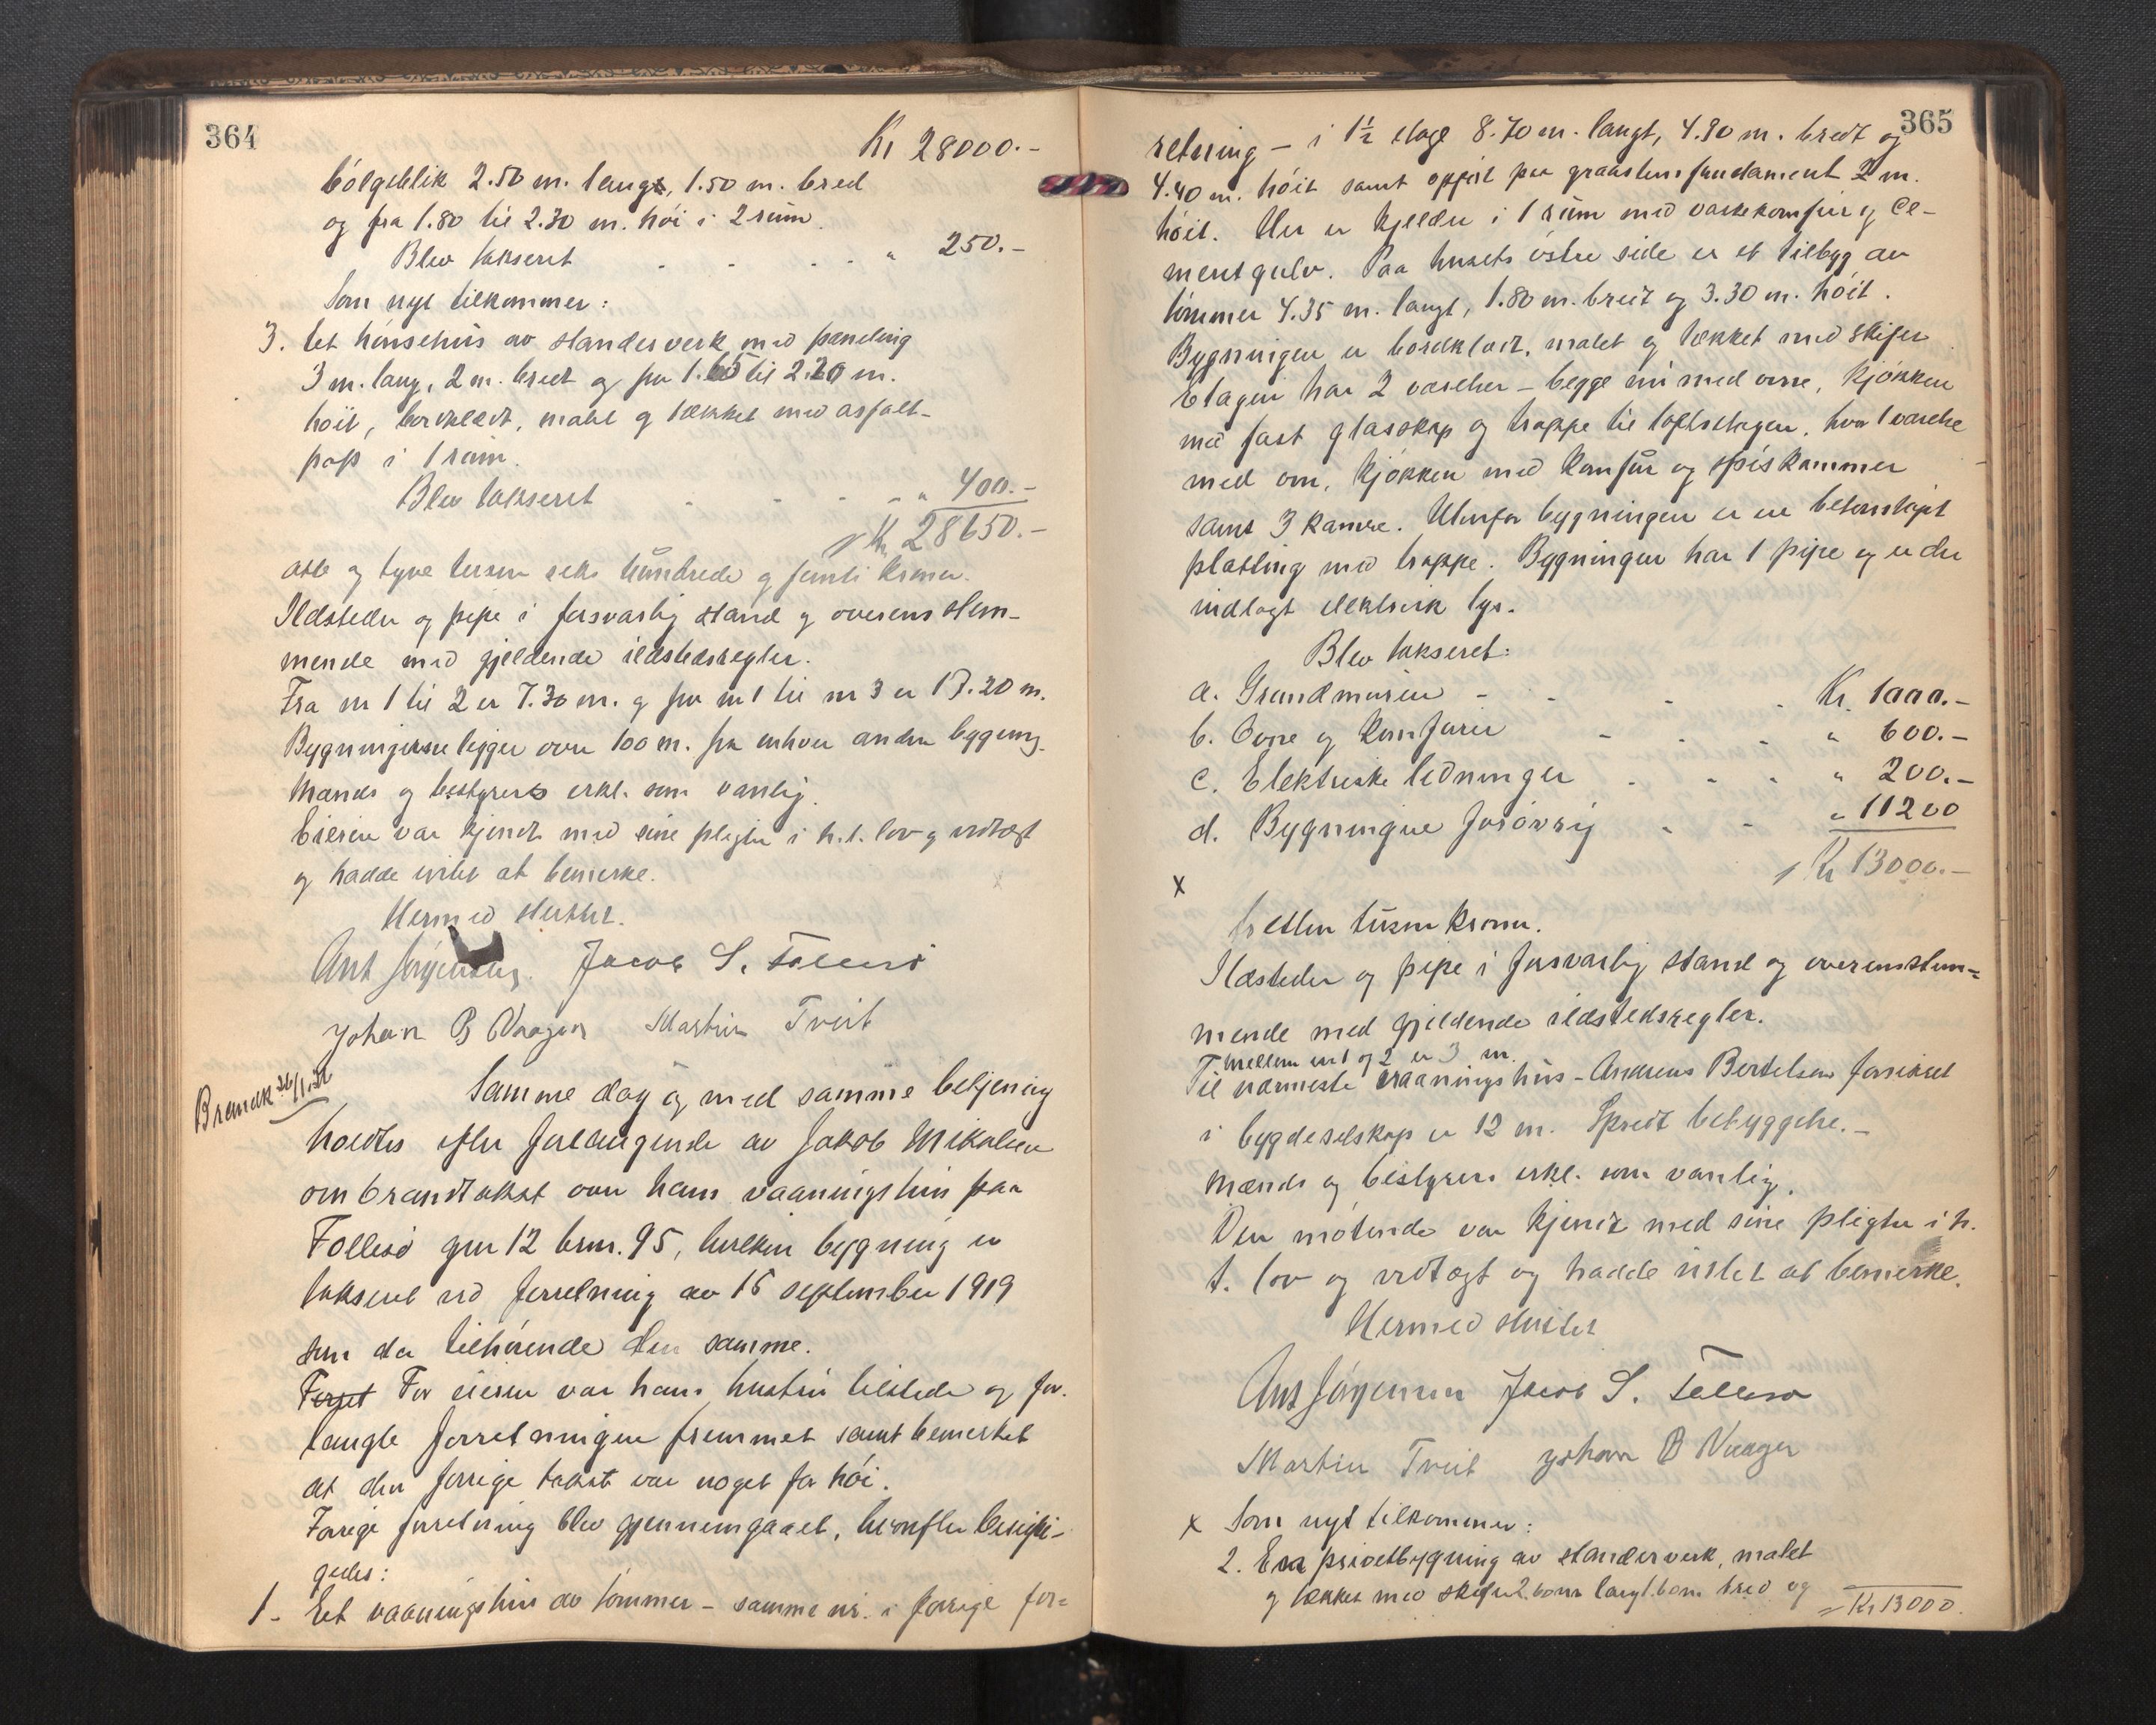 364
Kr 28000.-
bölgeblik 2.50 m. langt, 1.50 m. bred
og fra 1.80 til 2.30 m. höi i 2 rum.
Blev takseret " 250.-
Som nyt tilkommer:
3. Et hönsehus av standerverk med paneling
3 m. lang, 2 m. bredt og fra 1.65 til 2.20 m.
höit, bordklædt, malt og tækket med asfalt-
pap i 1 rum.
Blev takseret " 400.-
Kr 28650.-
otte og tyve tusen seks hundrede og femti kroner.
Ildsteder og pipe i forsvarlig stand og overensstem-
mende med gjeldende ildstedsregler.
Fra nr 1 til 2 er 7.30 m. og fra nr 1 til nr 3 er 17.20 m.
Bygningerne ligger over 100 m. fra enhver anden bygning.
Mænds og bestyrers erkl. som vanlig.
Eieren var kjendt med sine pligter i h.t. lov og vedtægt
og hadde intet at bemerke.
Hermed sluttet.
Ant Jörgensen. Jacob S. Follesö
Johan B Vaagen Martin Tveit
Brandk 26/1.21
Samme dag og med samme betjening
holdtes efter forlangende av Jakob Mikalsen
om brandtakst over hans vaaningshus paa
Follesö gnr 12 brn. 95, hvilken bygning er
takseret ved forretning av 15 september 1919
som da tilhörende den samme.
Forret For eieren var hans hustru tilstede og for-
langte forretningen fremmet samt bemerket
at den forrige takst var noget for höi.
Forrige forretning blev gjennemgaaet, hvorefter besigti-
gedes:
1. Et vaaningshus av tömmer - samme nr. i forrige for-
365
retning - i 1½ etage 8.70 m. langt, 4.90 m. bredt og
4.40 m. höit samt opfört paa graastensfundament 2 m.
höit. Her er kjelder i 1 rum med vaskekomfur og ce-
mentgulv. Paa husets östre side er et tilbyg av
tömmer 4.35 m. langt, 1.80 m. breit og 3.30 m. höit.
Bygningen er bordklædt, malet og tækket med skifer.
Etagen har 2 værelser - begge nu med ovne, kjökken
med fast glasskap og trappe til loftsetagen, hvor 1 værelse
med ovn, kjökken med komfur og spiskammer
samt 3 kamre. Utenfor bygningen er en betonstöpt
platting med trappe. Bygningen har 1 pipe og er der
indlagt elektrisk lys.
Blev takseret:
a. Grundmuren Kr. 1000.-
b. Ovne og komfurer " 600.-
c. Elektriske ledninger " 200.-
d. Bygningen forövrig " 11200
Kr 13000.-
x
tretten tusen kroner.
Ildsteder og pipe i forsvarlig stand og overensstem-
mende med gjeldende ildstedsregler.
Mellem nr 1 og 2 er 3 m.
Til nærmeste vaaningshus - Andreas Bertelsen forsikret
i bygdeselskap er 12 m. Spredt bebyggelse.-
Mænds og bestyrers erkl. som vanlig.
Den mötende var kjendt med sine pligter i h.
t. lov og vedtægt og hadde intet at bemerke.
Hermed sluttet
Ant Jörgensen Jacob S. Follesö
Martin Tveit Johan B Vaagen
x Som nyt tilkommer:
2. En privetbygning av standerverk, malet
og tækket med skifer 2 bom langt bom bred og
Kr 13000.